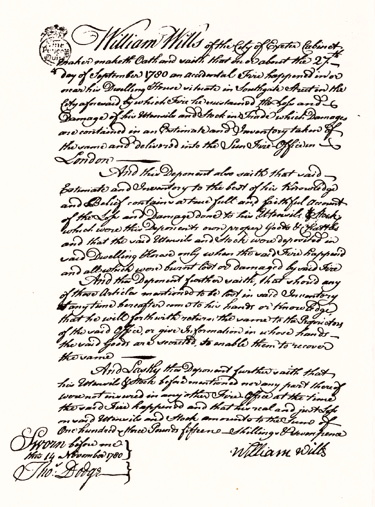 William Wills of the City of Exeter Cabinet
maker maketh Oath and saith that on or about the 27th
day of September 1780 an accidental Fire happened in or
near his Dwelling House situate in Southgate Street in the
City aforesaid by which Fire he sustained the Loss and
Damage of his Utensils and Stock in Trade which Damages
are contained in an Estimate and Inventory taken of
the same and delivered into the Sun Fire Office in
London
And this Deponent also saith that said
Estimate and Inventory to the best of his Knowledge
and Belief contains a true full and faithful account
of the Loss and Damage done to his Utensils & Stock
which were this Deponents own proper Goods & Chattels
and that the said Utensils and Stock were deposited in
said Dwelling House only when the said Fire happened
and all which were burnt lost or damaged by said Fire
And this Deponent further saith, that should any
of those Articles mentioned to be lost in said Inventory
at any time hereafter come to his hands or Knowledge
that he will forthwith return the same to the Proprietors
of the said Office, or give Information in whose hands
the said Goods are secreted to enable them to recover
the same
And Lastly this Deponent further saith that
his Utensils & Stock before mentioned nor any part thereof
were not insured in any other Fire Office at the time
the said Fire happened and that his real and just Loss
on said Utensils and Stock amounts to the Sum of
One hundred & three Pounds fifteen Shillings & Seven pence
Sworn before me
this 14 November 1780
Thos. Dodge
William Wills